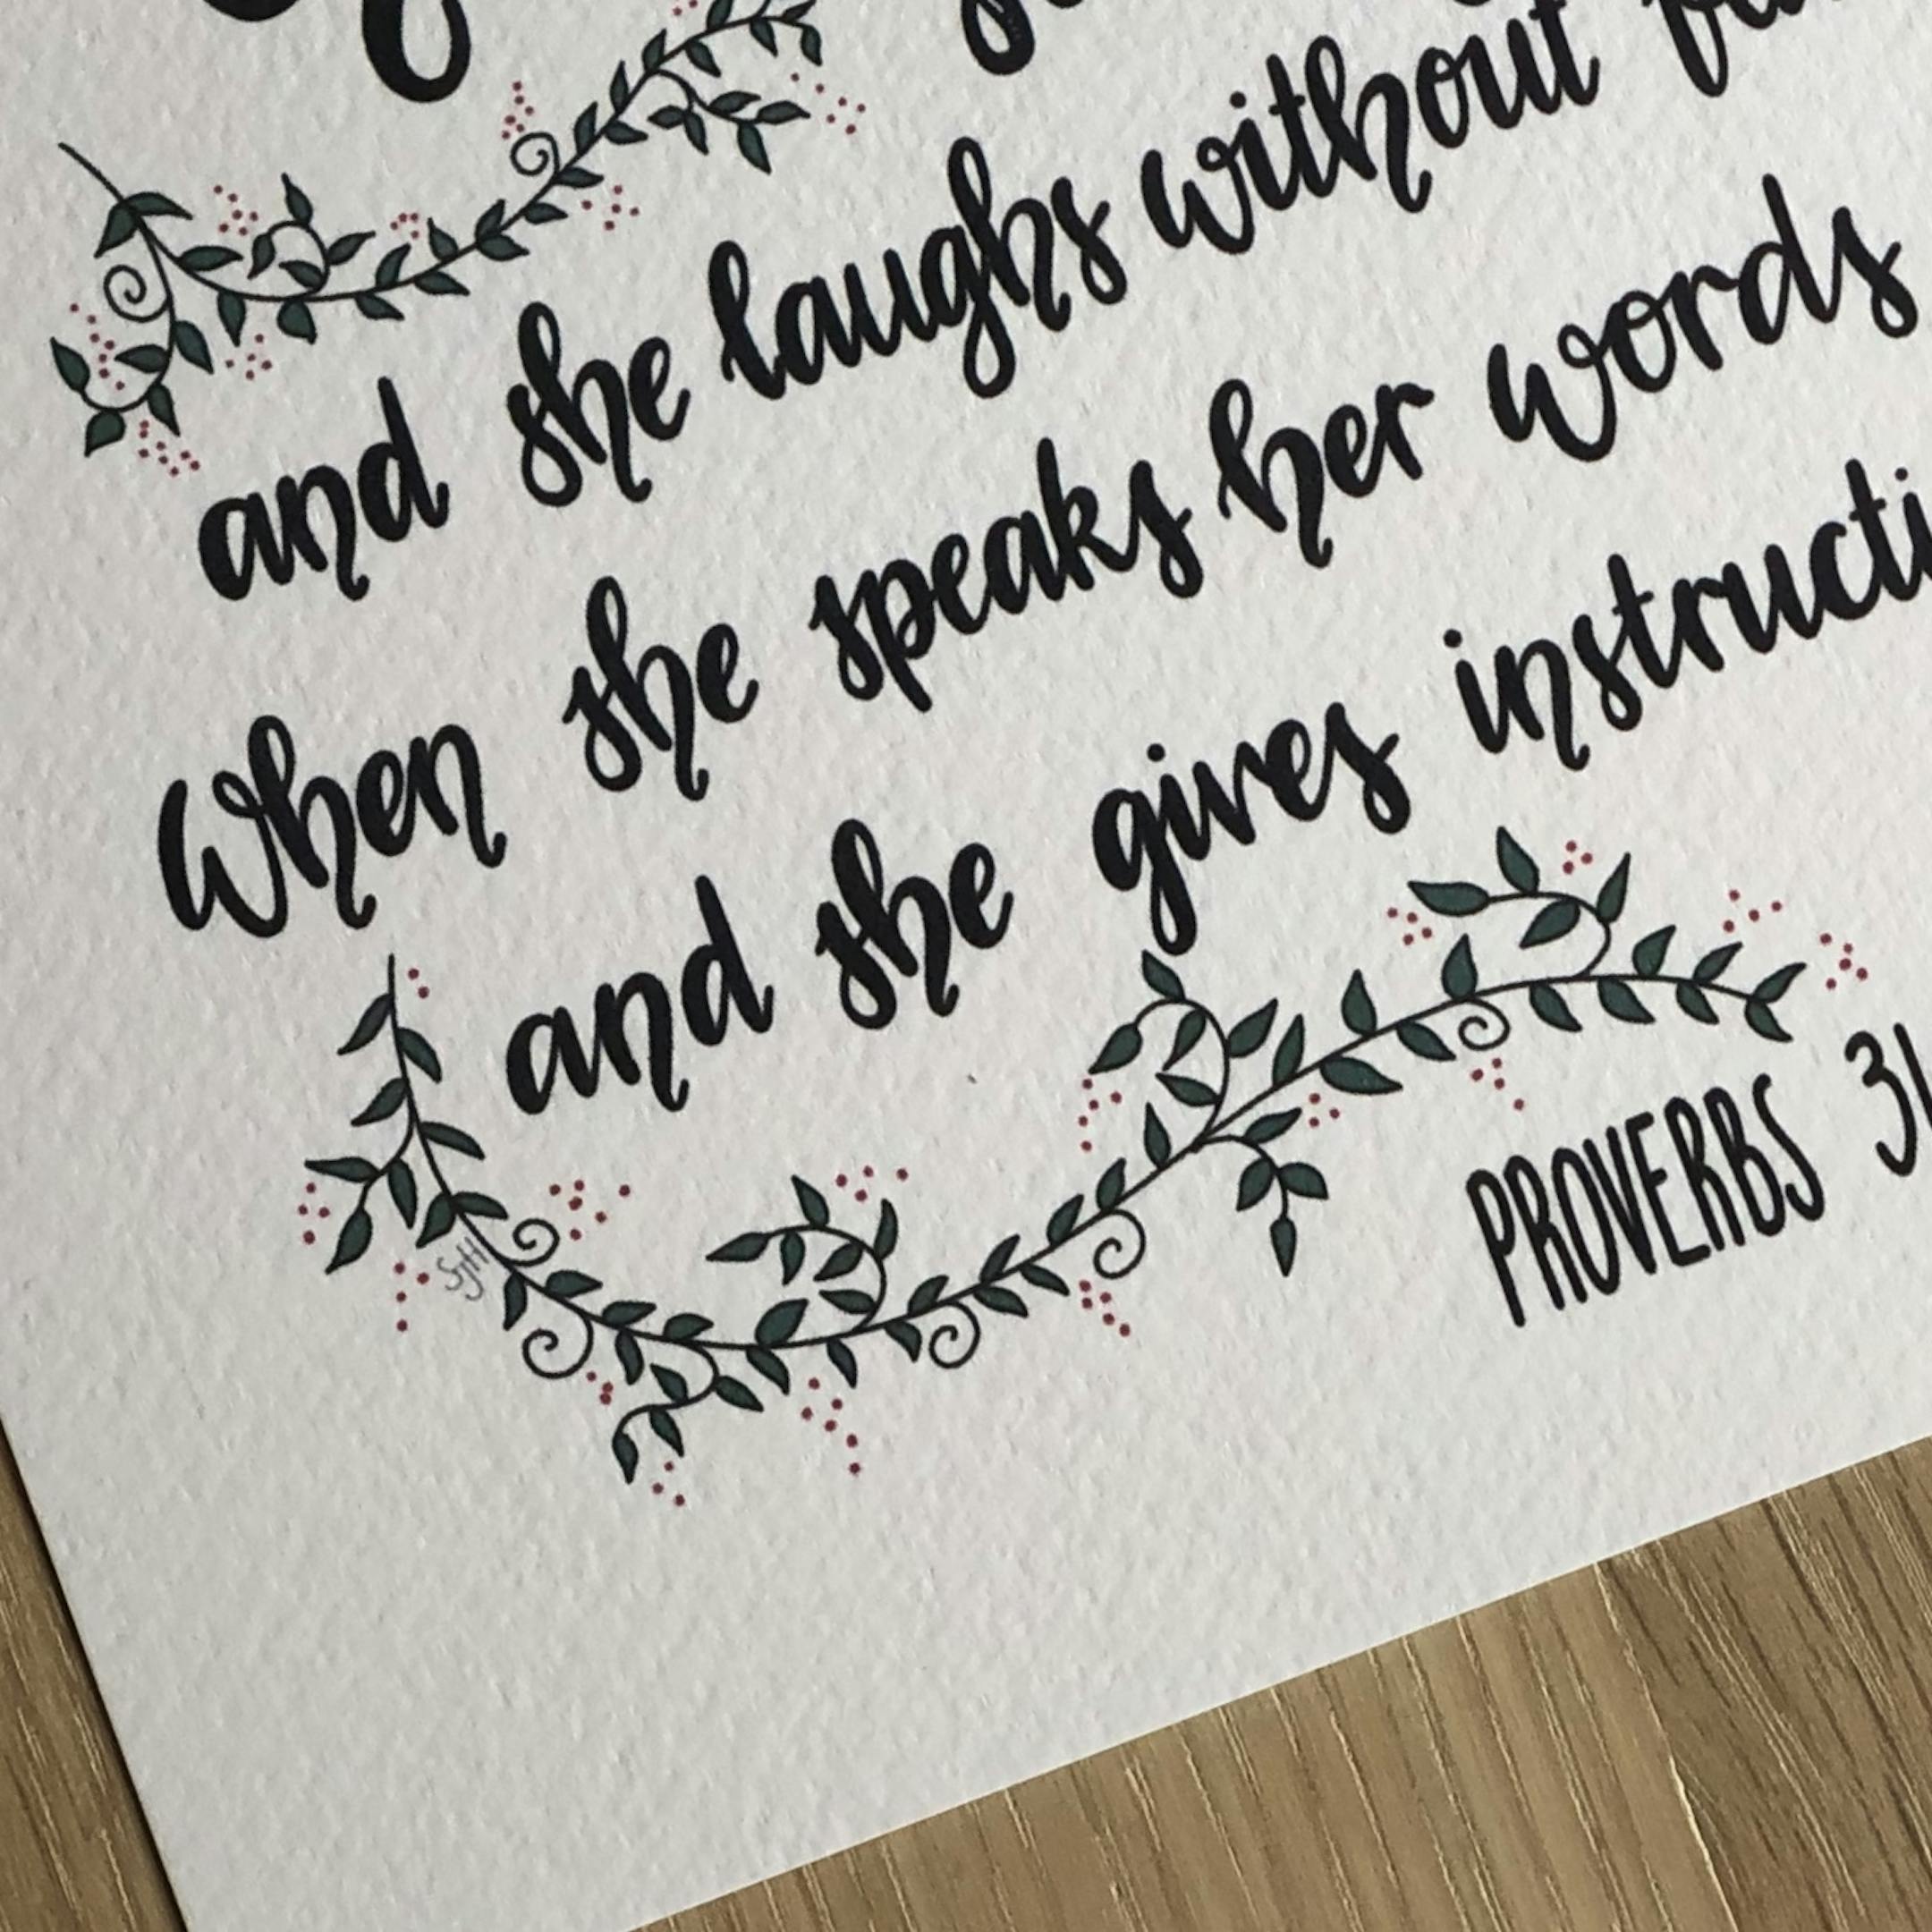 and she laughs without
When she speaks her words
and she gives instructi
SJH
PROVERBS 31